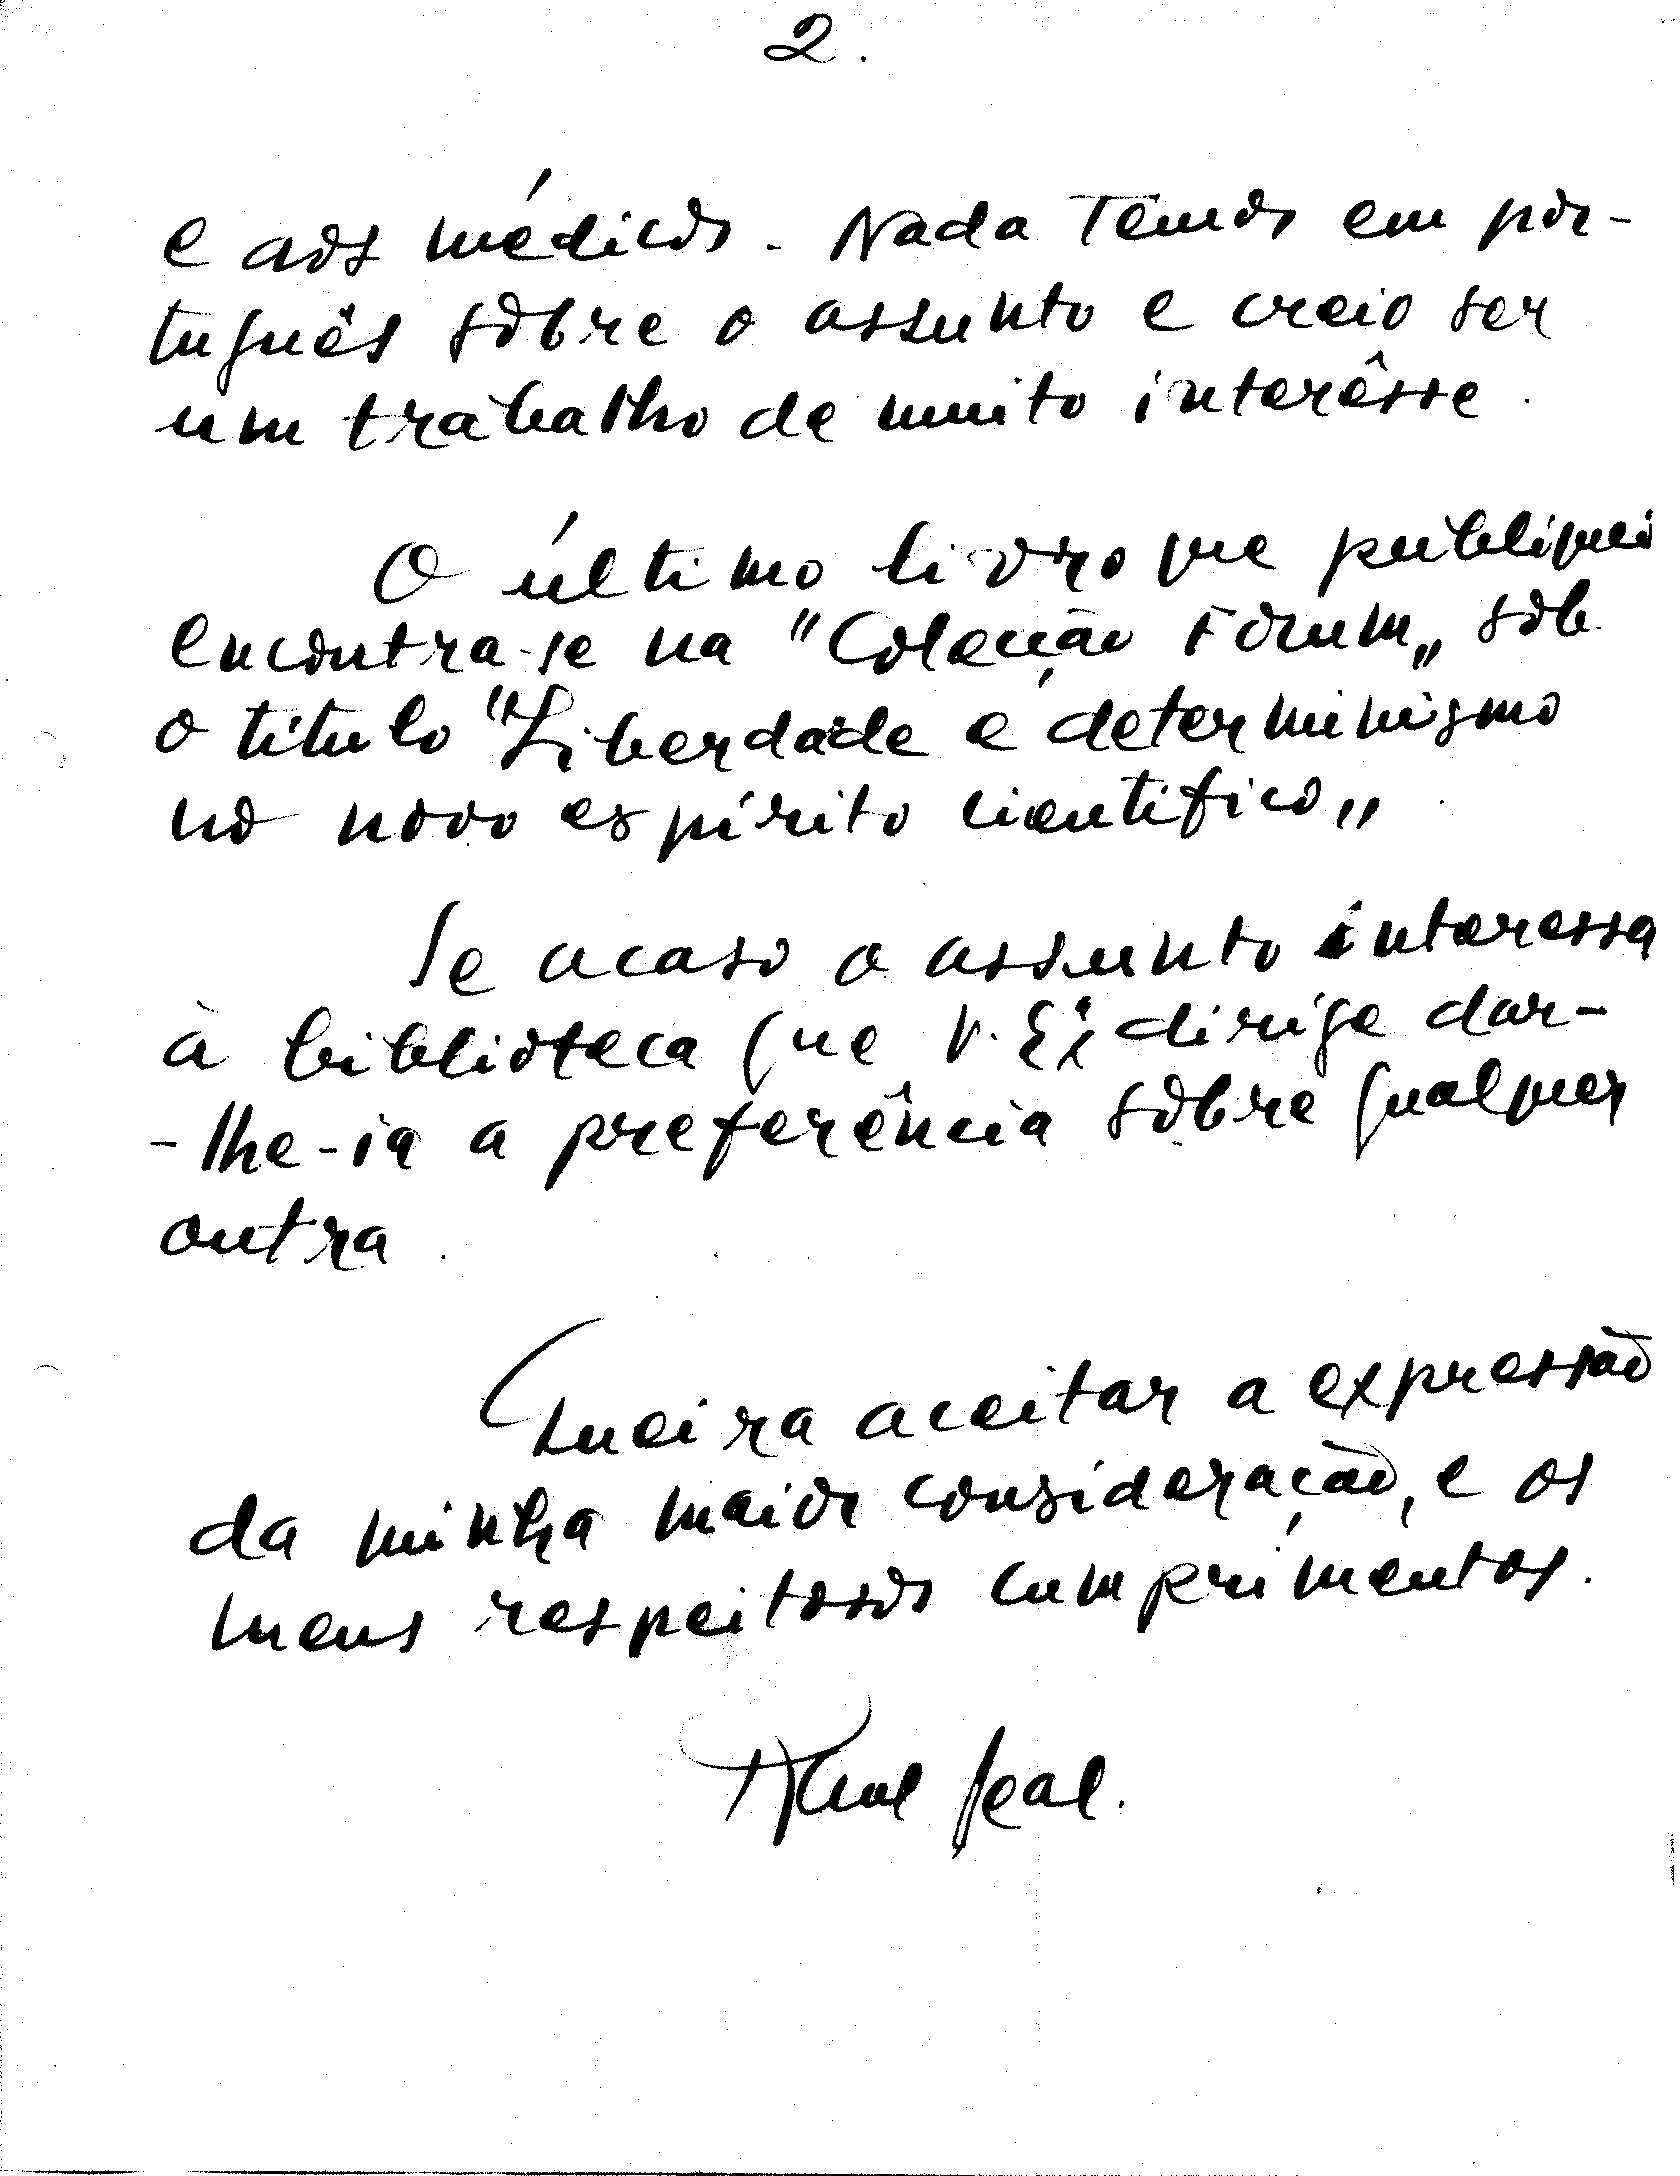 2.
e aos médicos. Nada temos em por-
tuguês sôbre o assunto e creio ser
um trabalho de muito interêsse.
O último livro que publiquei
encontra-se na "Colecção Fórum" sob
o título "Liberdade e determinismo
no novo espírito científico"
Se acaso o assunto interessa
à biblioteca que V. Exª dirige dar-
-lhe-ia a preferência sôbre qualquer
outra.
Queira aceitar a expressão
da minha maior consideração, e os
meus respeitosos cumprimentos.
Raul Leal.